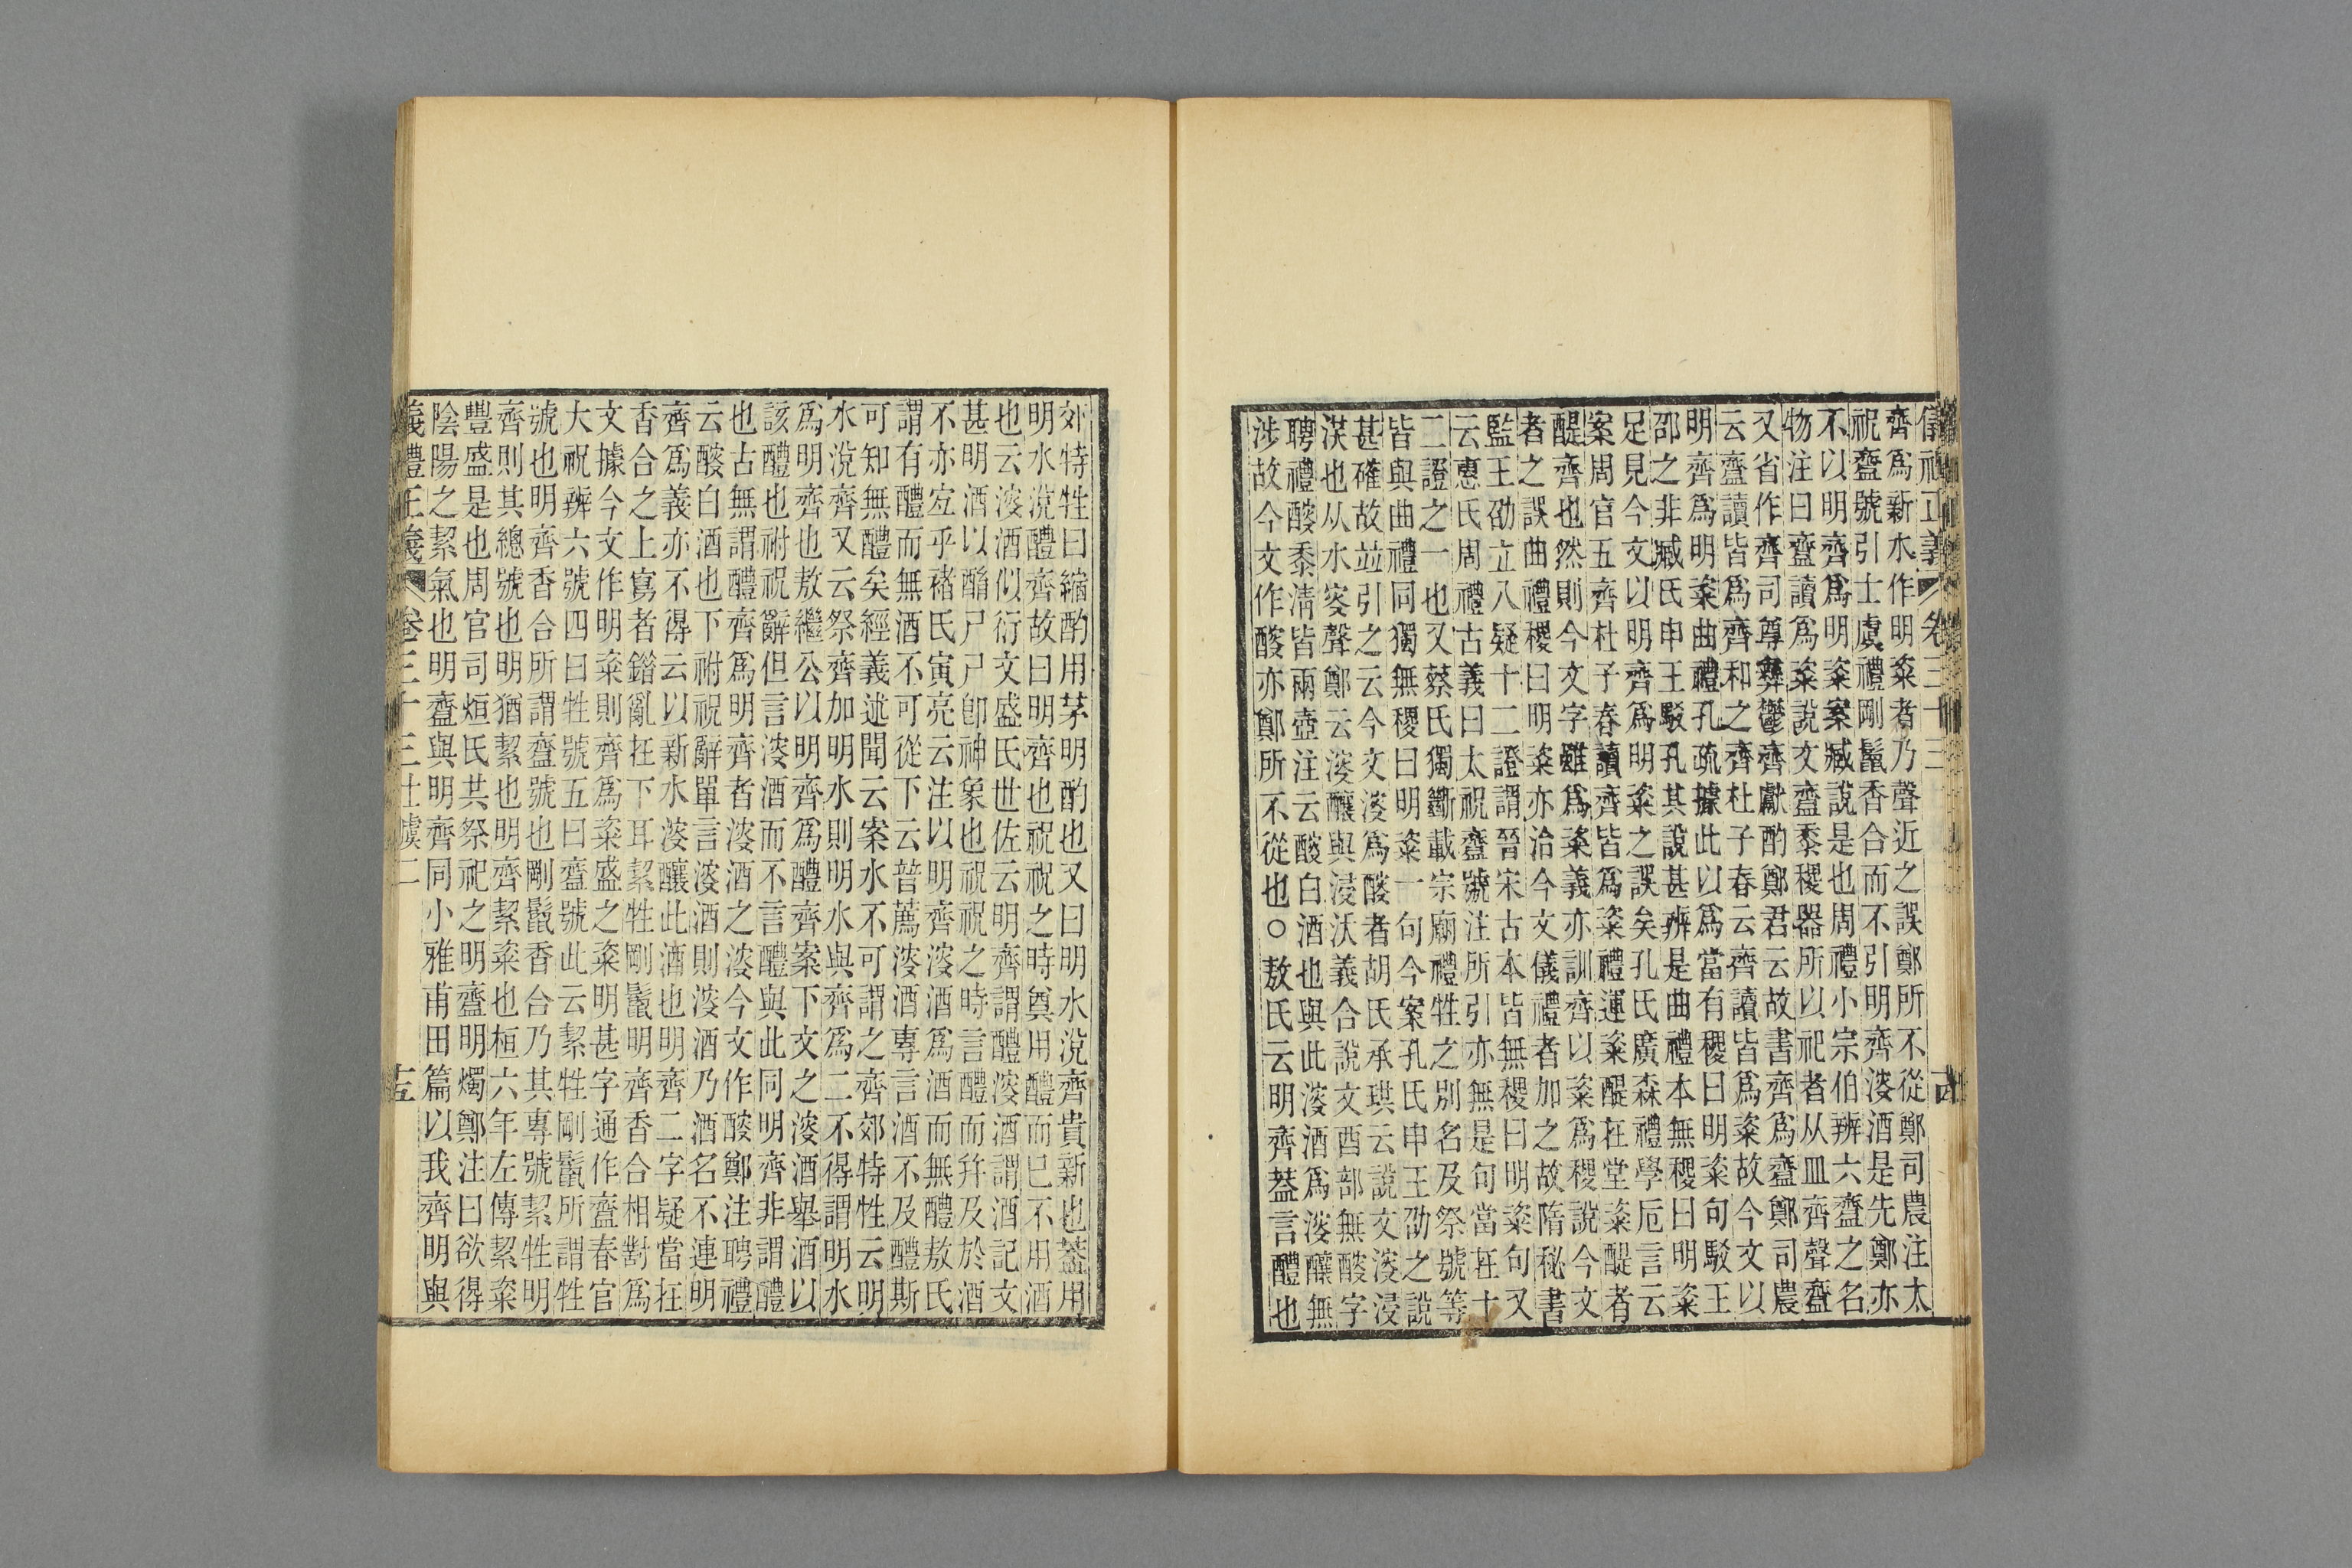 儀禮正義 卷三十三
齊爲新水作明粢者乃聲近之誤鄭所不從鄭司農注太
祝齍號引士虞禮剛鬣香合而不引明齊溲酒是先鄭亦
不以明齊爲明粢案臧說是也周禮小宗伯辨六齍之名
物注曰齍讀爲粢說文齍黍稷器所以祀者从皿齊聲齍
又省作齊司尊彝鬱齊獻酌鄭君云故書齊爲齍鄭司農
云齍讀皆爲齊和之齊杜子春云齊讀皆爲粢故今文以
明齊爲明粢曲禮孔疏據此以爲當有稷曰明粢句駁王
邵之非臧氏申王駁孔其說甚辨是曲禮本無稷曰明粢
足見今文以明齊爲明粢之誤矣孔氏廣森禮學卮言云
案周官五齊杜子春讀齊皆爲粢禮運粢醍在堂粢醍者
醍齊也然則今文字雖爲粢義亦訓齊以粢爲稷說今文
者之誤曲禮稷曰明粢亦洽今文儀禮者加之故隋秘書
監王劭立八疑十二證謂晉宋古本皆無稷曰明粢句又
云惠氏周禮古義曰太祝齍號注所引亦無是句當在十
二證之一也又蔡氏獨斷載宗廟禮牲之別名及祭號等
皆與曲禮同獨無稷曰明粢一句今案孔氏申王劭之說
甚確故並引之云今文溲爲醙者胡氏承珙云說文溲浸
渶也从水叜聲鄭云溲釀與浸沃義合說文酉部無醙字
聘禮醙黍清皆兩壺注云醙白酒也與此溲酒爲溲釀無
涉故今文作醙亦鄭所不從也○敖氏云明齊葢言醴也
郊特牲曰縮酌用茅明酌也又曰明水涗齊貴新也葢用
明水涗醴齊故曰明齊也祝祝之時奠用醴而已不用酒
也云溲酒似衍文盛氏世佐云明齊謂醴溲酒謂酒記文
甚明酒以酳尸尸卽神象也祝祝之時言醴而幷及於酒
不亦宐乎褚氏寅亮云注以明齊溲酒爲酒而無醴敖氏
謂有醴而無酒不可從下云普薦溲酒專言酒不及醴斯
可知無醴矣經義述聞云案水不可謂之齊郊特牲云明
水涗齊又云祭齊加明水則明水與齊爲二不得謂明水
爲明齊也敖繼公以明齊爲醴齊案下文之溲酒舉酒以
該醴也祔祝辭但言溲酒而不言醴與此同明齊非謂醴
也古無謂醴齊爲明齊者溲酒之溲今文作醙鄭注聘禮
云醙白酒也下祔祝辭單言溲酒則溲酒乃酒名不連明
齊爲義亦不得云以新水溲釀此酒也明齊二字疑當在
香合之上寫者錯亂在下耳絜牲剛鬣明齊香合相對爲
文據今文作明粢則齊爲粢盛之粢明甚字通作齍春官
大祝辨六號四曰牲號五曰齍號此云絜牲剛鬣所謂牲
號也明齊香合所謂齍號也剛鬣香合乃其專號絜牲明
齊則其總號也明猶絜也明齊絜粢也桓六年左傳絜粢
豐盛是也周官司烜氏共祭祀之明齍明燭鄭注曰欲得
陰陽之絜氣也明齍與明齊同小雅甫田篇以我齊明與
義禮正義 卷三十三士虞二 十五